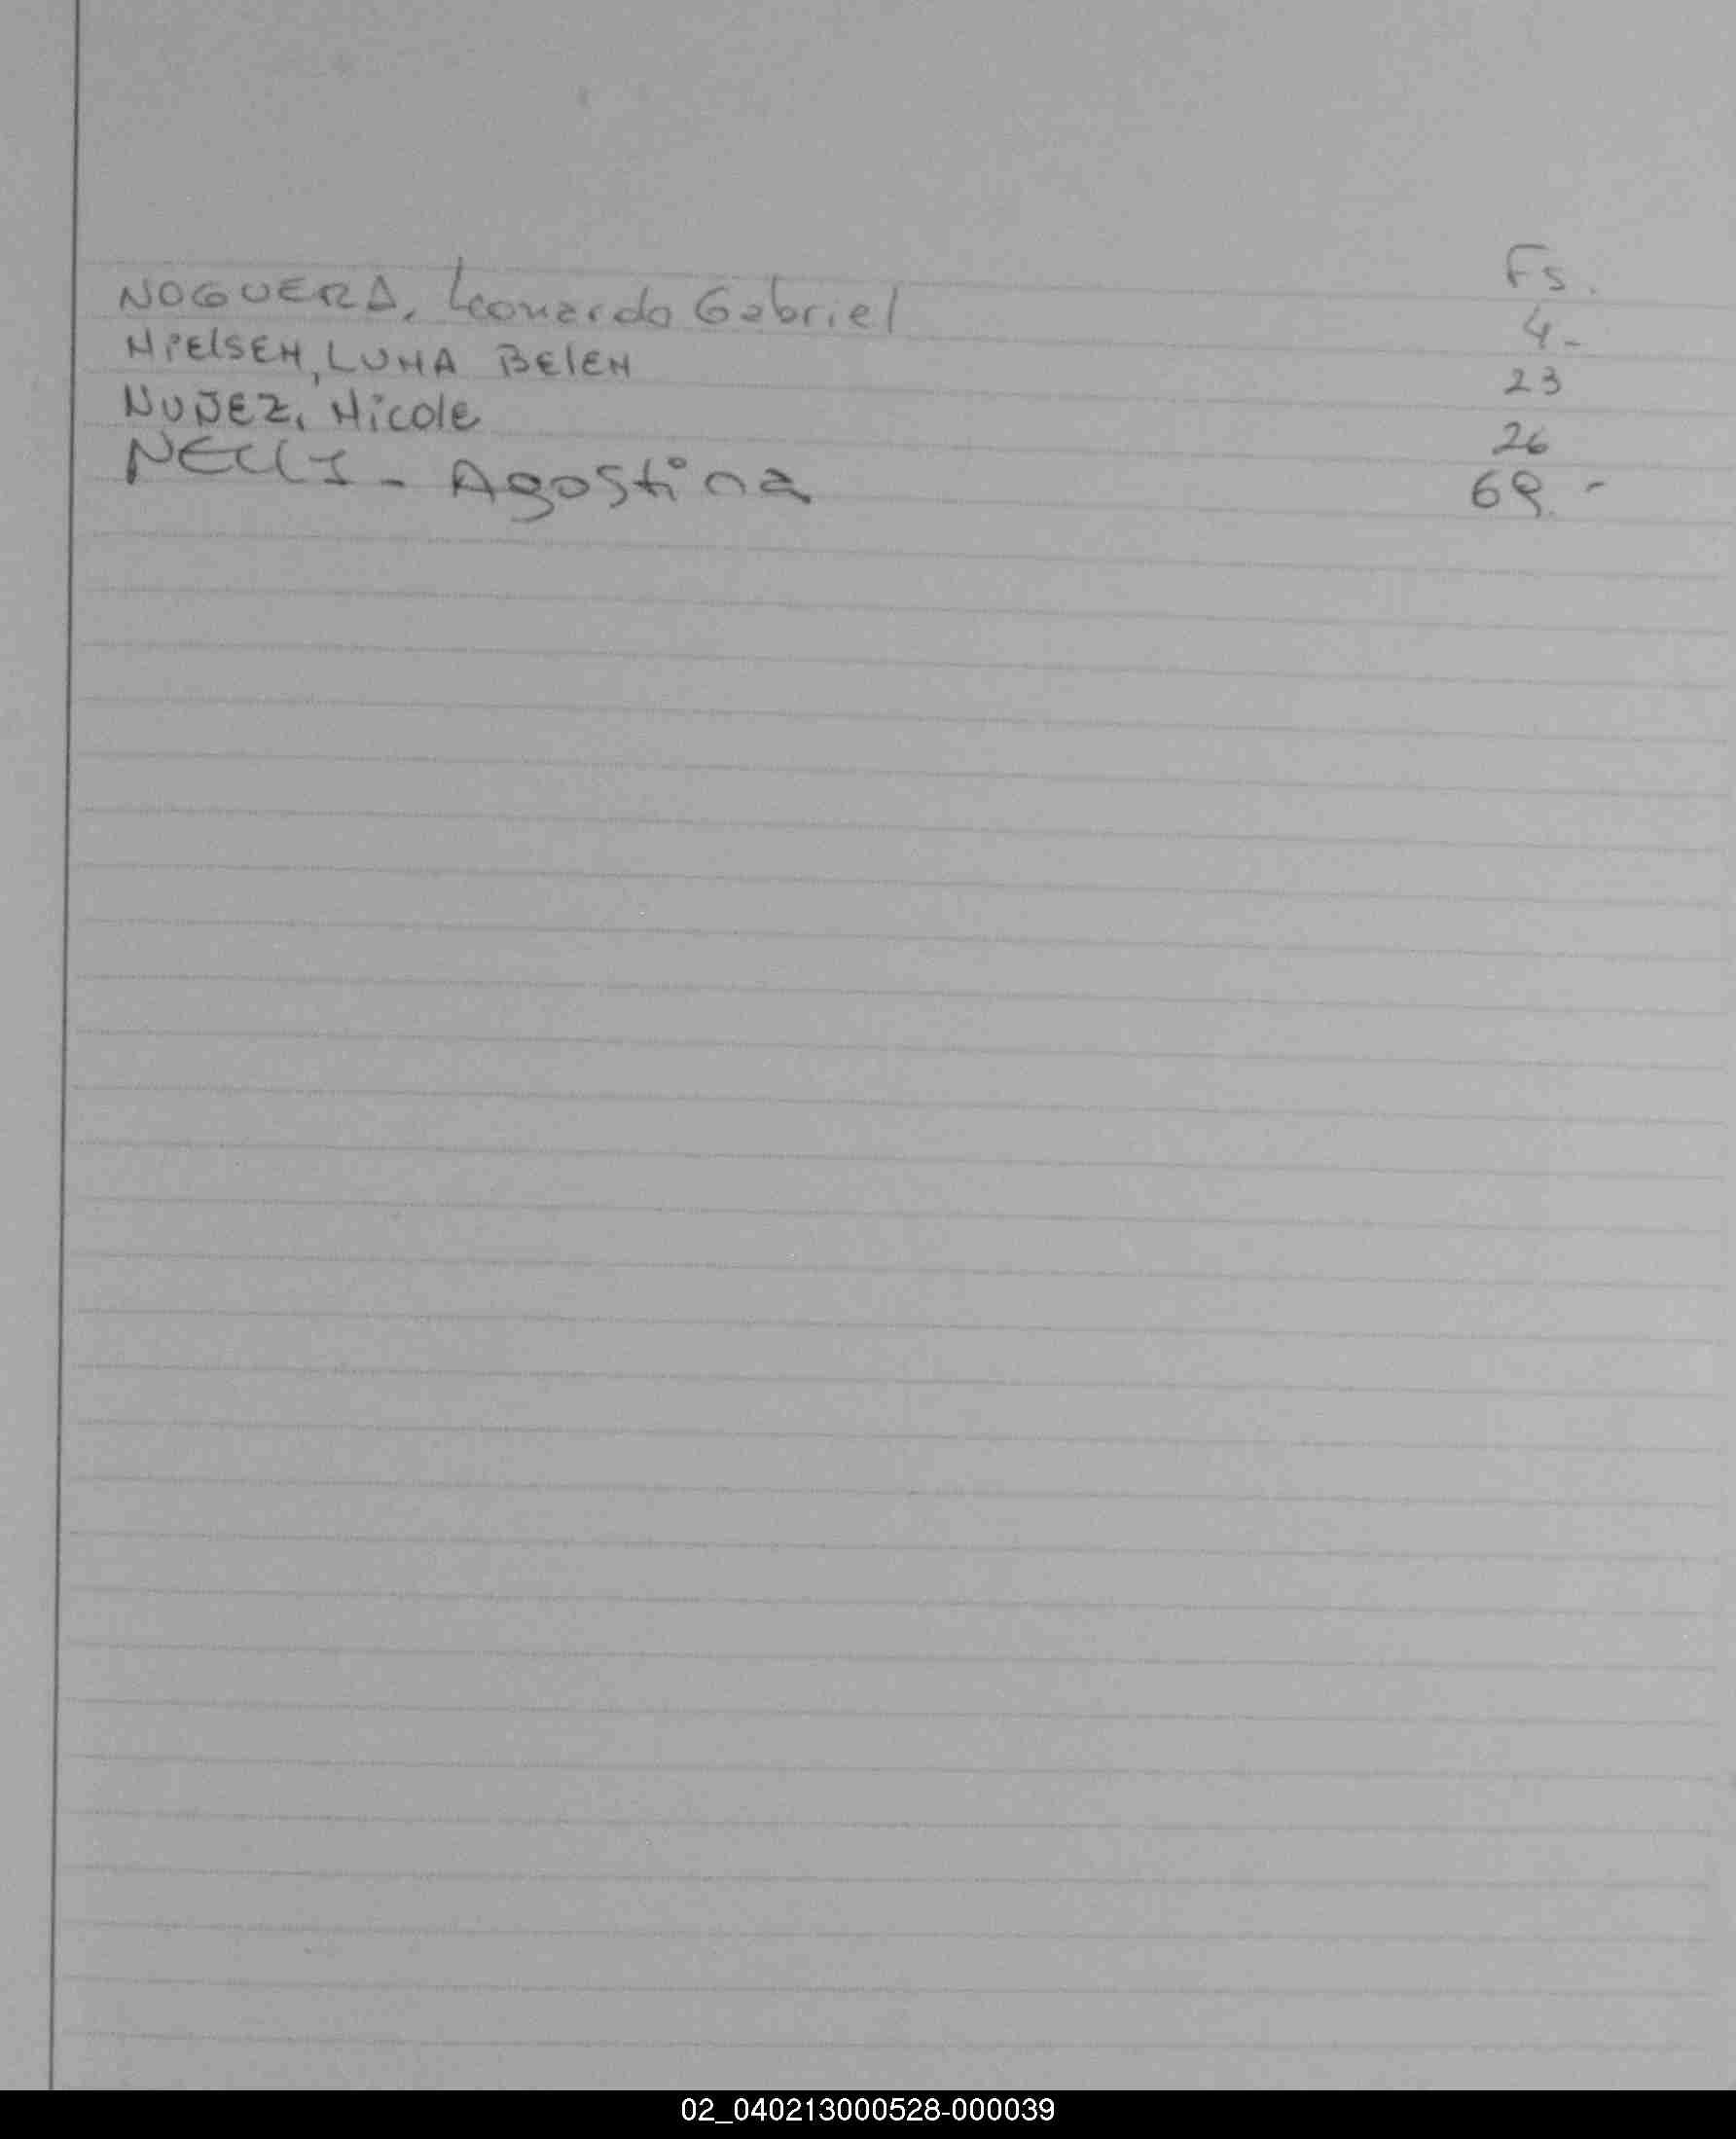 Fs.
NOGUERA, Leonardo Gabriel 4-
NielSEN, LUNA BElEN 23
NUÑEZ, Nicole 26
NELLI - Agostina 69.-
02_040213000528-000039